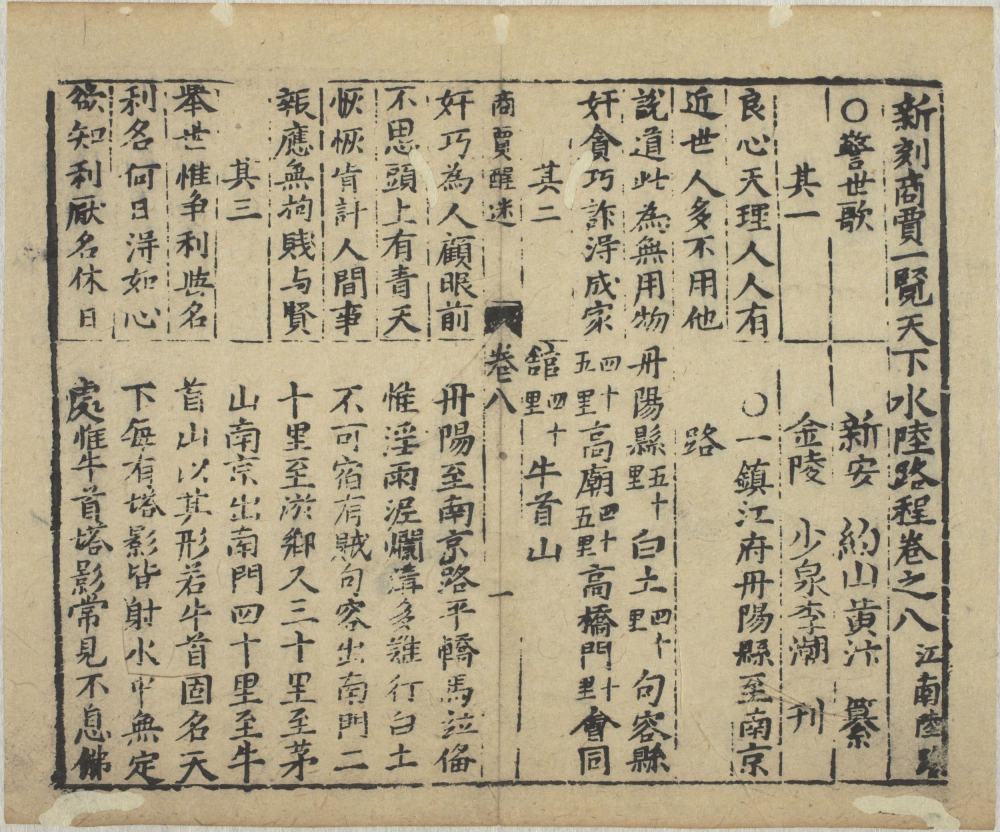 新刻商賈一覽天下水陸路程卷之八 江南陸路
○警世歌
其一
良心天理人人有
近世人多不用他
說道此為無用物
奸貪巧詐淂成家
其二
商賈醒迷 卷八 一
奸巧為人顧眼前
不思頭上有青天
恢恢肯計人間事
報應無拘賤与賢
其三
舉世惟争利與名
利名何日淂如心
欲知利厭名休日
新安 約山黃汴 纂
金陵 少泉李潮 刊
○一鎮江府丹陽縣至南京
路
丹陽縣五十里白土四十里句容縣
四十五里高廟四十五里高橋門十里會同
舘四十里牛首山
丹陽至南京路平轎馬竝俻
惟淫雨泥爛溝多難行白土
不可宿有賊句容出南門二
十里至淤鄉又三十里至茅
山南京出南門四十里至牛
首山以其形若牛首固名天
下每有塔影皆射水中無定
處惟牛首塔影常見不息佛